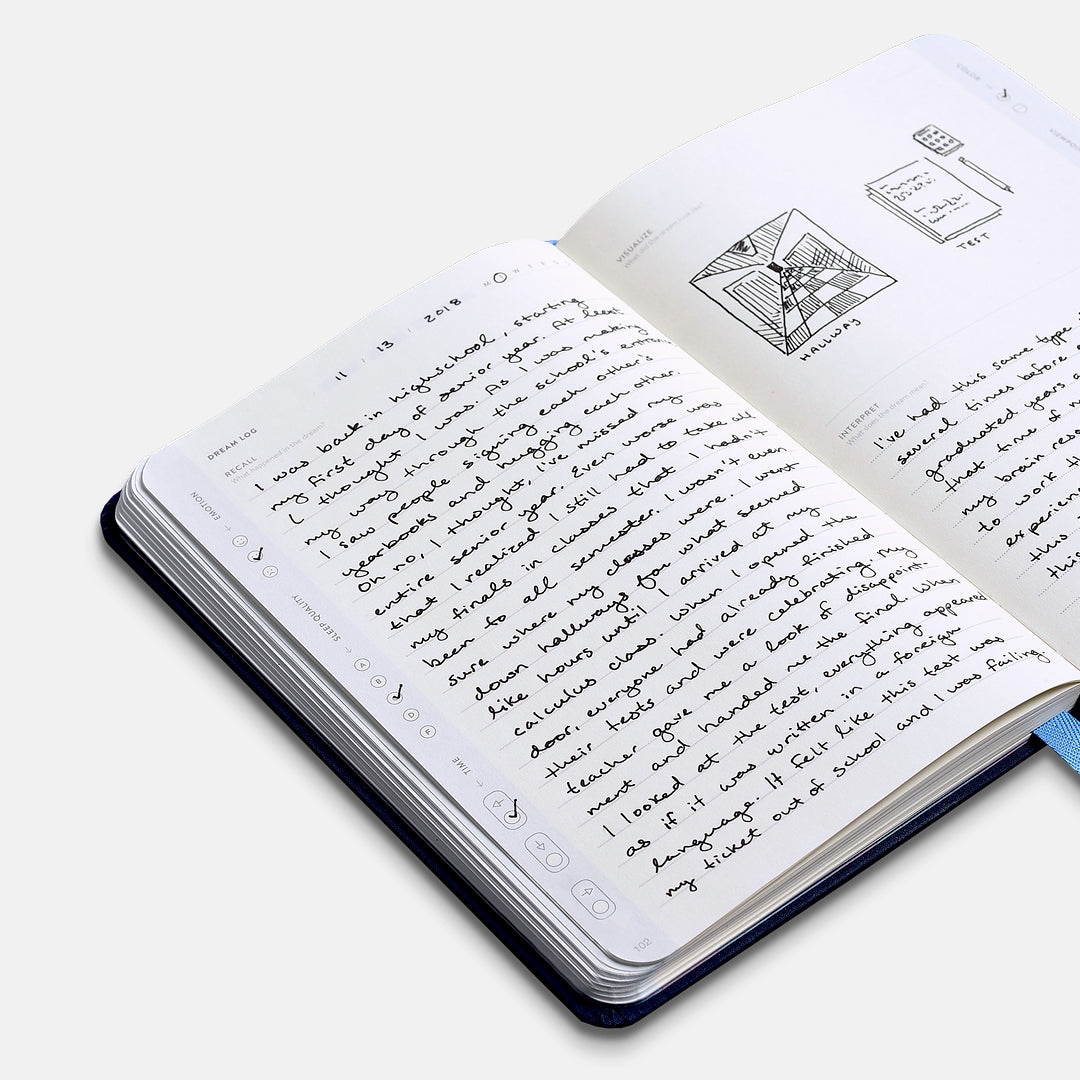 11 / 13 / 2018
M T W T F S S
DREAM LOG
RECALL
What happened in the dream?
I was back in highschool, starting
my first day of senior year. At least
I thought I was. As I was making
my way through the school's entran
I saw people signing each other's
yearbooks and hugging each other.
Oh no, I thought, I've missed my
entire senior year. Even worse was
that I realized I still had to take all
my finals in classes that I hadn't
been to all semester. I wasn't even
sure where my classes were. I went
down hallways for what seemed
like hours until I arrived at my
calculus class. When I opened the
door, everyone had already finished
their tests and were celebrating. My
teacher gave me a look of disappoint-
ment and handed me the final. When
I looked at the test, everything appeared
as if it was written in a foreign
language. It felt like this test was
my ticket out of school and I was failing.
EMOTION
SLEEP QUALITY
A
B
D
F
TIME
102
VISUALIZE
What did the dream look like?
HALLWAY
TEST
INTERPRET
What does the dream mean?
I've had this same type
several times before
graduated years
that time of
my brain
to work
experien
this
this